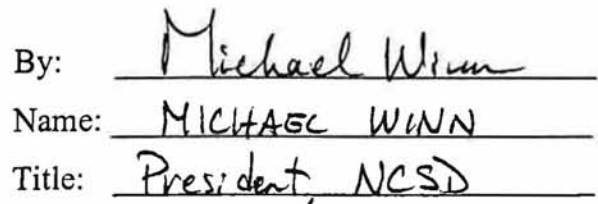 By: Michael Winn
Name: MICHAEL WINN
Title: President, NCSD